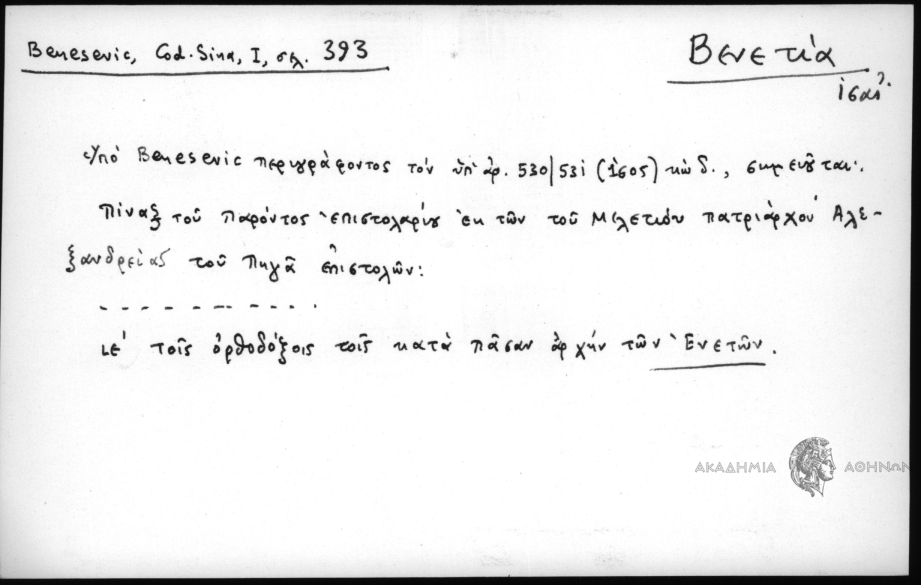 Benesevic, Cod. Sina, I, σελ. 393
Βενετία
Ὑπό Benesevic περιγράφοντος τόν ὑπ' ἀρ. 530/531 (1605) κώδ., σημειοῦται:
Πίναξ τοῦ παρόντος ἐπιστολαρίου ἐκ τῶν τοῦ Μελετίου πατριάρχου Ἀλε-
ξανδρείας τοῦ Πηγᾶ ἐπιστολῶν:
- - - - - - - - - .
ιε' τοῖς ὀρθοδόξοις τοῖς κατά πᾶσαν ἀρχήν τῶν Ἐνετῶν.
ΑΚΑΔΗΜΙΑ ΑΘΗΝΩΝ